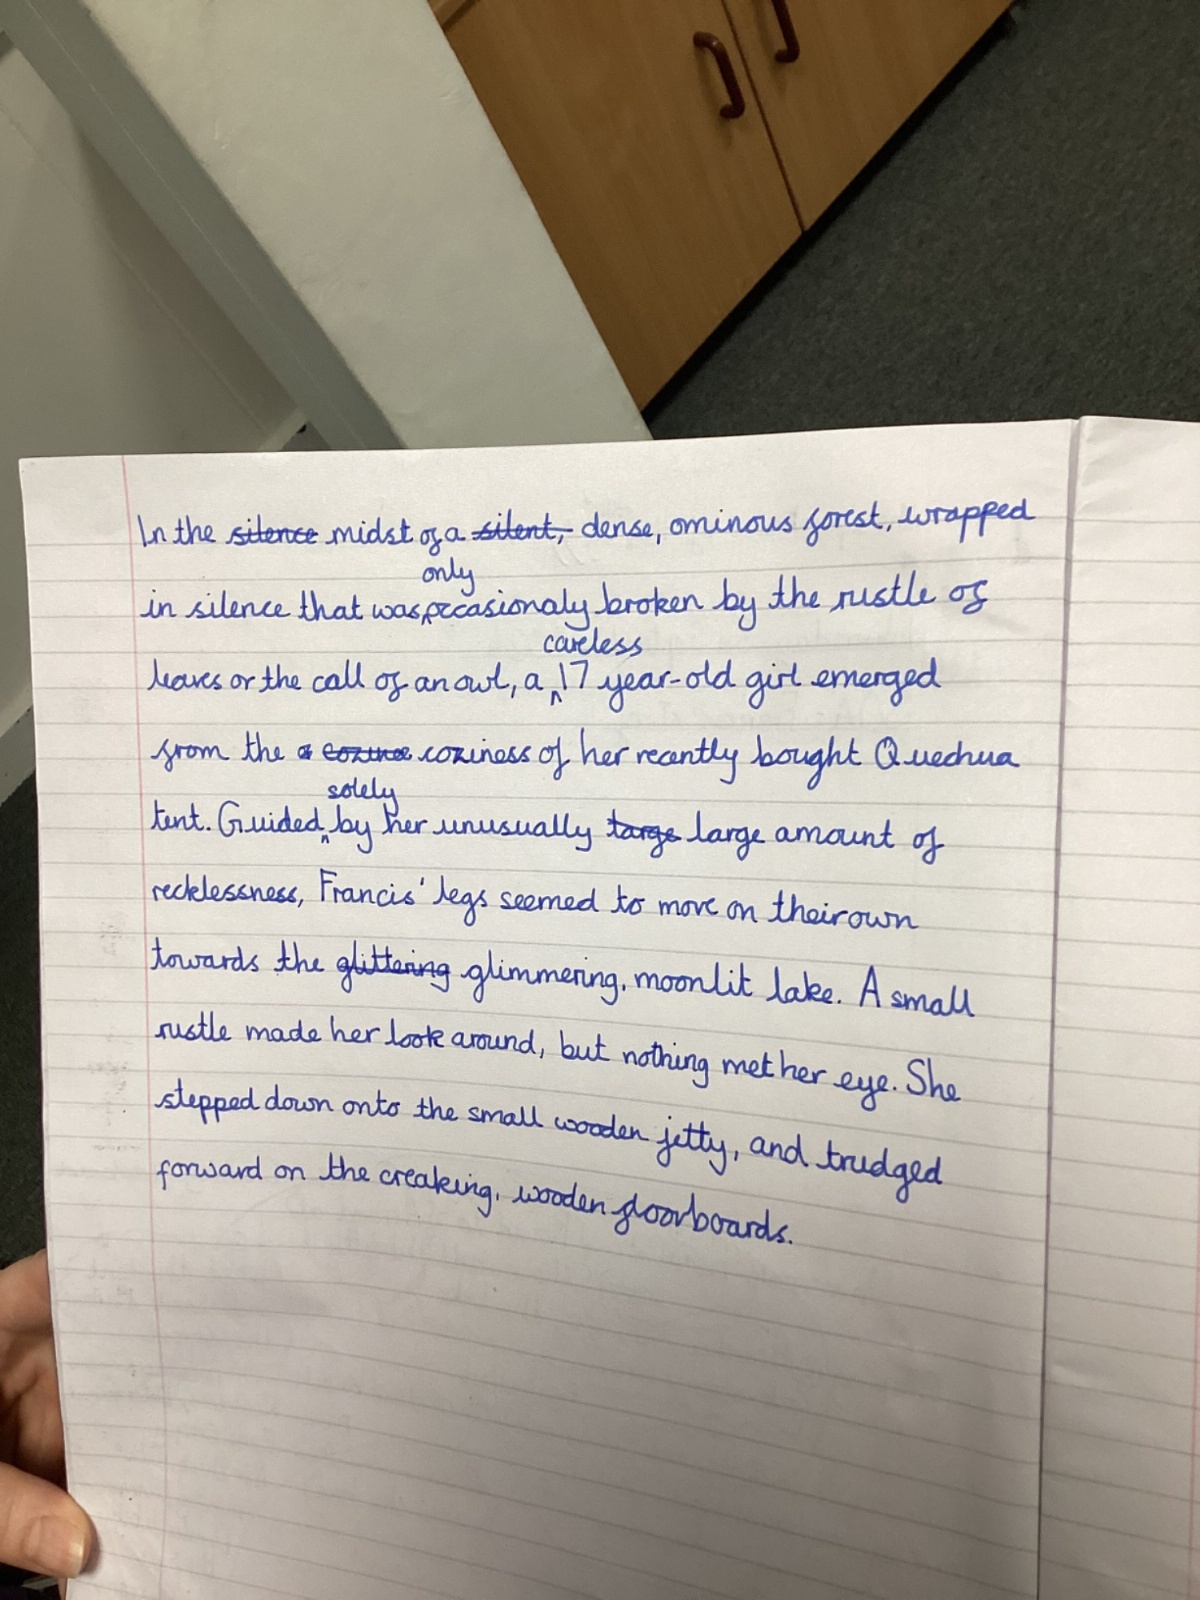 In the silence midst of a silent, dense, ominous forest, wrapped
only
in silence that was occasionaly broken by the rustle of
careless
leaves or the call of an owl, a 17 year-old girl emerged
from the a cozines coziness of her recently bought Quechua
solely
tent. Guided by her unusually large large amount of
recklessness, Francis' legs seemed to move on their own
towards the glittering glimmering, moonlit lake. A small
rustle made her look around, but nothing met her eye. She
stepped down onto the small wooden jetty, and trudged
forward on the creaking, wooden floorboards.